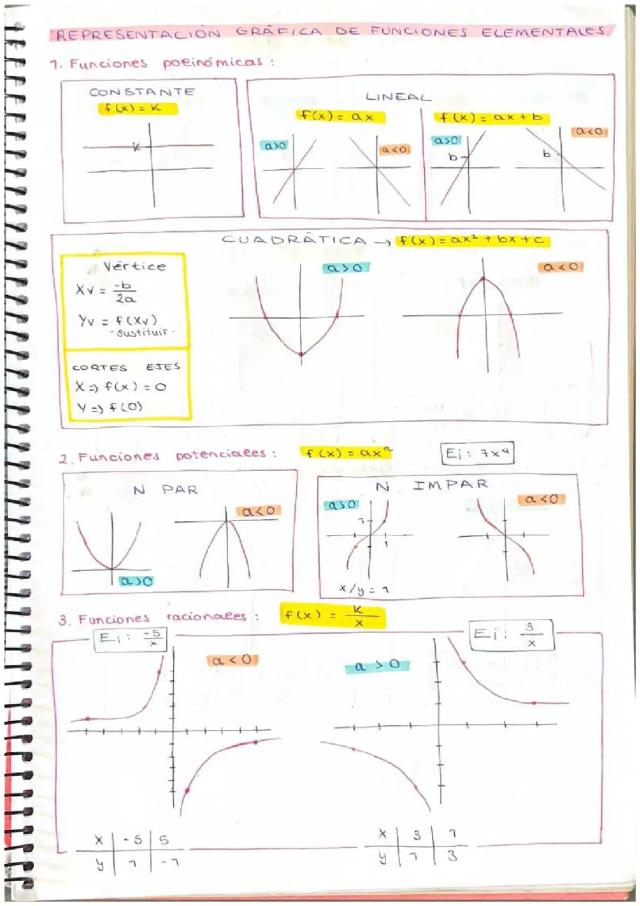 REPRESENTACIÓN GRÁFICA DE FUNCIONES ELEMENTALES
1. Funciones polinómicas:
CONSTANTE
f(x) = K
K
LINEAL
f(x) = ax
a>0
a<0
f(x) = ax + b
a>0
a<0
b
b
CUADRÁTICA → f(x) = ax² + bx + c
a>0
a<0
Vértice
Xv = -b/2a
Yv = f(Xv)
-sustituir-
CORTES EJES
X => f(x) = 0
Y => f(0)
2. Funciones potenciales: f(x) = axⁿ Ej: 7x⁴
N PAR
a<0
a>0
N IMPAR
a>0
a<0
1
1
x/y = 1
3. Funciones racionales: f(x) = K/x
Ej: -5/x
a<0
a>0
Ej: 3/x
x | -5 | 5
y | 1 | -1
x | 3 | 1
y | 1 | 3